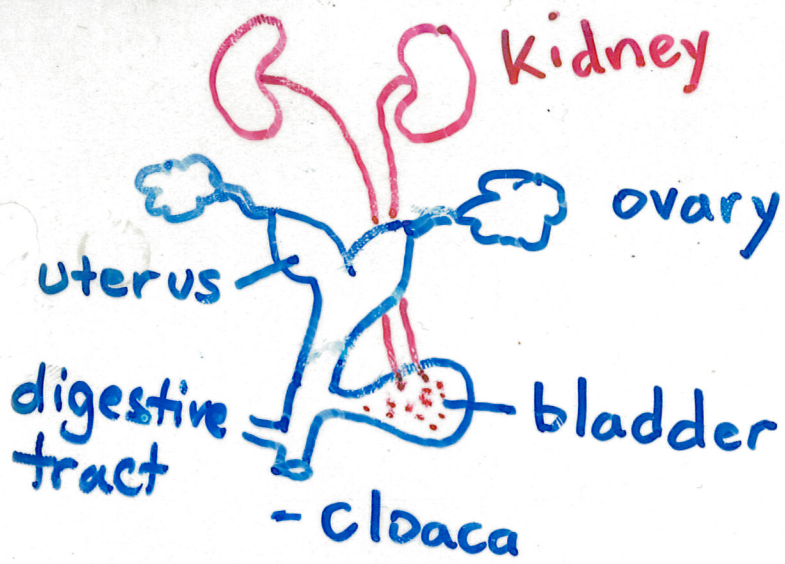 Kidney
ovary
uterus
digestive
tract
bladder
- Cloaca